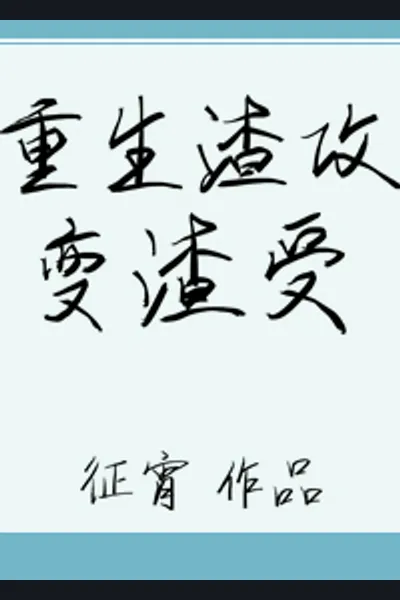 重生渣攻
变渣受
征宵 作品